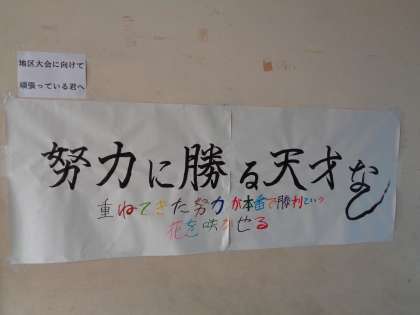 地区大会に向けて
頑張っている君へ
努力に勝る天才なし
重ねてきた努力が本番で勝利という
花を咲かせる